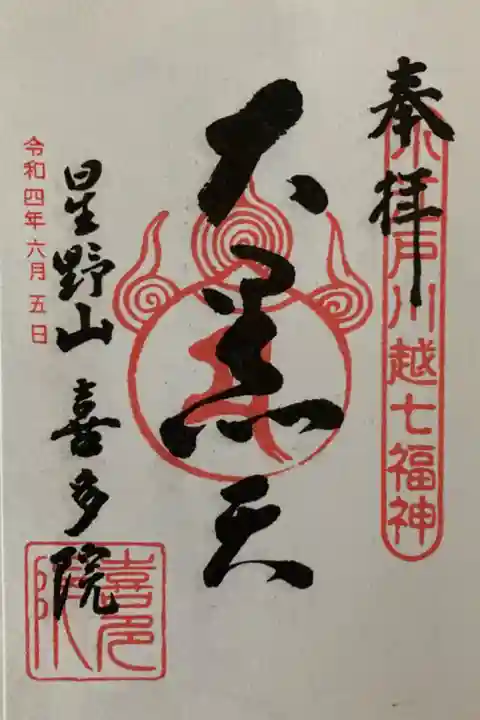 奉拝
小江戸川越七福神
大黒天
星野山 喜多院
令和四年六月五日
喜多院